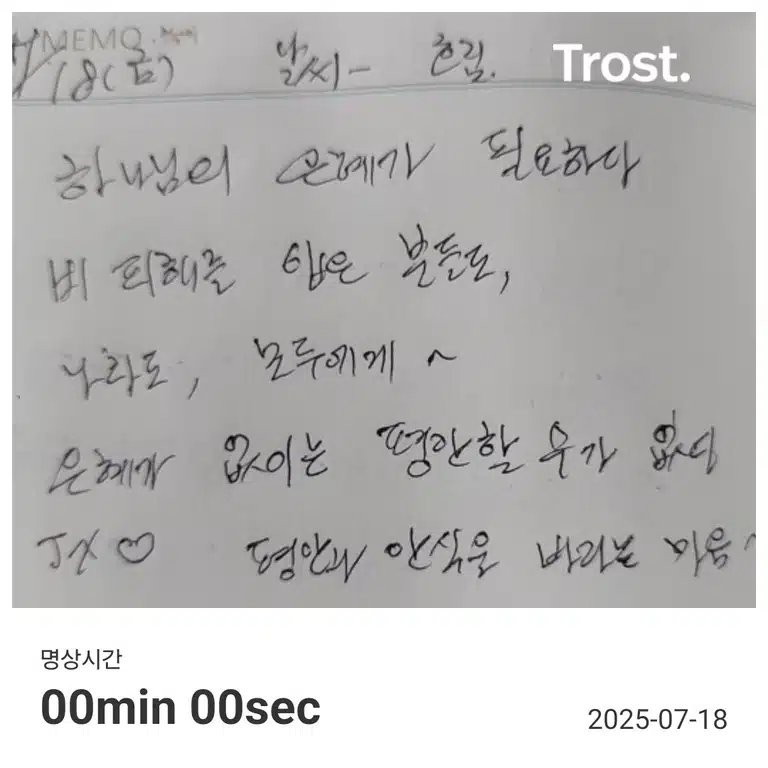 MEMO
7/18(금) 날씨- 흐림.
Trost.
하나님의 은혜가 필요하다
비 피해를 입은 분들도,
나라도, 모두에게 ~
은혜가 없이는 평안할 수가 없어
JX ♡ 평안과 안식을 바라는 마음~
명상시간
00min 00sec
2025-07-18